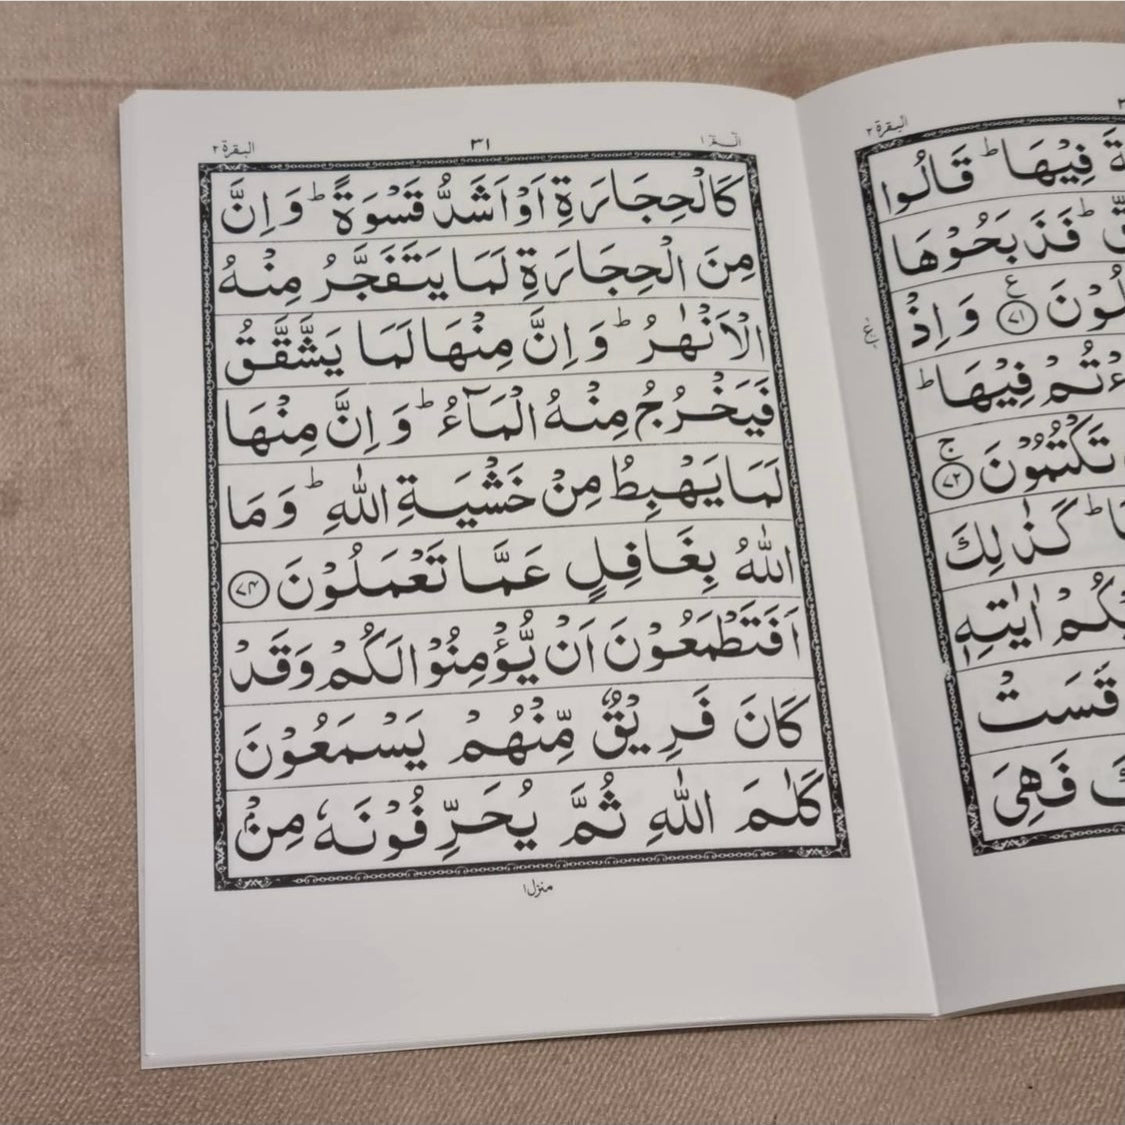 البقرة ٢
٣١
الٓمٓ ١
كَالْحِجَارَةِ اَوْ اَشَدُّ قَسْوَةً ؕ وَ اِنَّ
مِنَ الْحِجَارَةِ لَمَا يَتَفَجَّرُ مِنْهُ
الْاَنْهٰرُ ؕ وَ اِنَّ مِنْهَا لَمَا يَشَّقَّقُ
فَيَخْرُجُ مِنْهُ الْمَآءُ ؕ وَ اِنَّ مِنْهَا
لَمَا يَهْبِطُ مِنْ خَشْيَةِ اللّٰهِ ؕ وَ مَا
اللّٰهُ بِغَافِلٍ عَمَّا تَعْمَلُوْنَ ﴿٧٤﴾
اَفَتَطْمَعُوْنَ اَنْ يُّؤْمِنُوْا لَكُمْ وَقَدْ
كَانَ فَرِيْقٌ مِّنْهُمْ يَسْمَعُوْنَ
كَلٰمَ اللّٰهِ ثُمَّ يُحَرِّفُوْنَهٗ مِنْۢ
منزل ١
البقرة ٢
فِيْهَا ؕ قَالُوا
فَذَبَحُوْهَا
لُوْنَ ﴿٧١﴾ ع وَ اِذْ
ءْتُمْ فِيْهَا ؕ
تَكْتُمُوْنَ ﴿٧٢﴾ ج
ؕ كَذٰلِكَ
كُمْ اٰيٰتِهٖ
قَسَتْ
كَ فَهِيَ